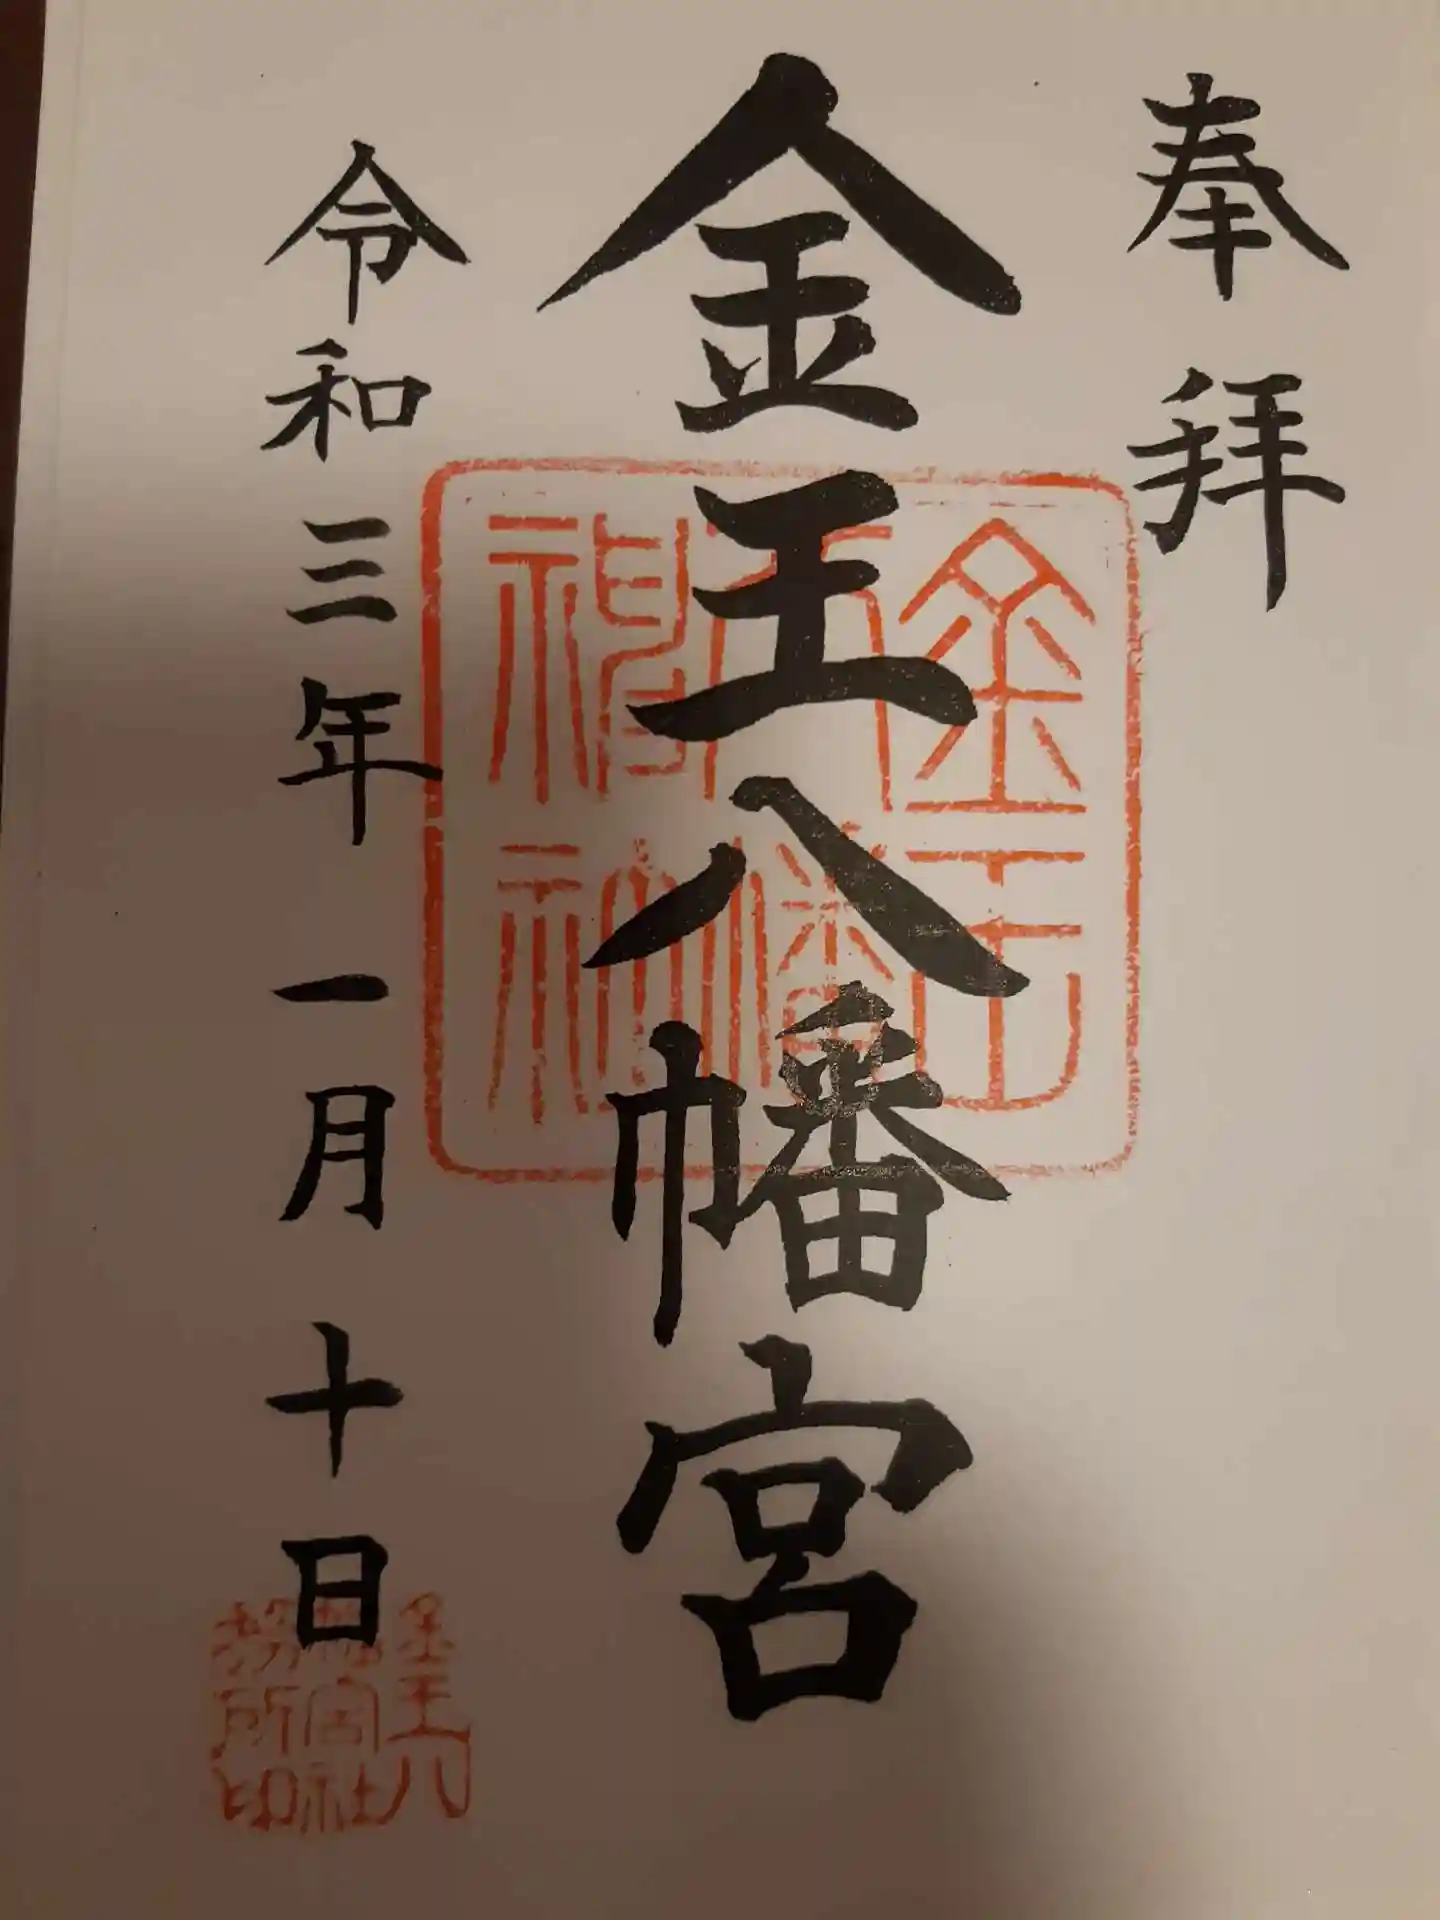 奉拝
金王八幡宮
令和三年一月十日
金王八幡宮社務所印